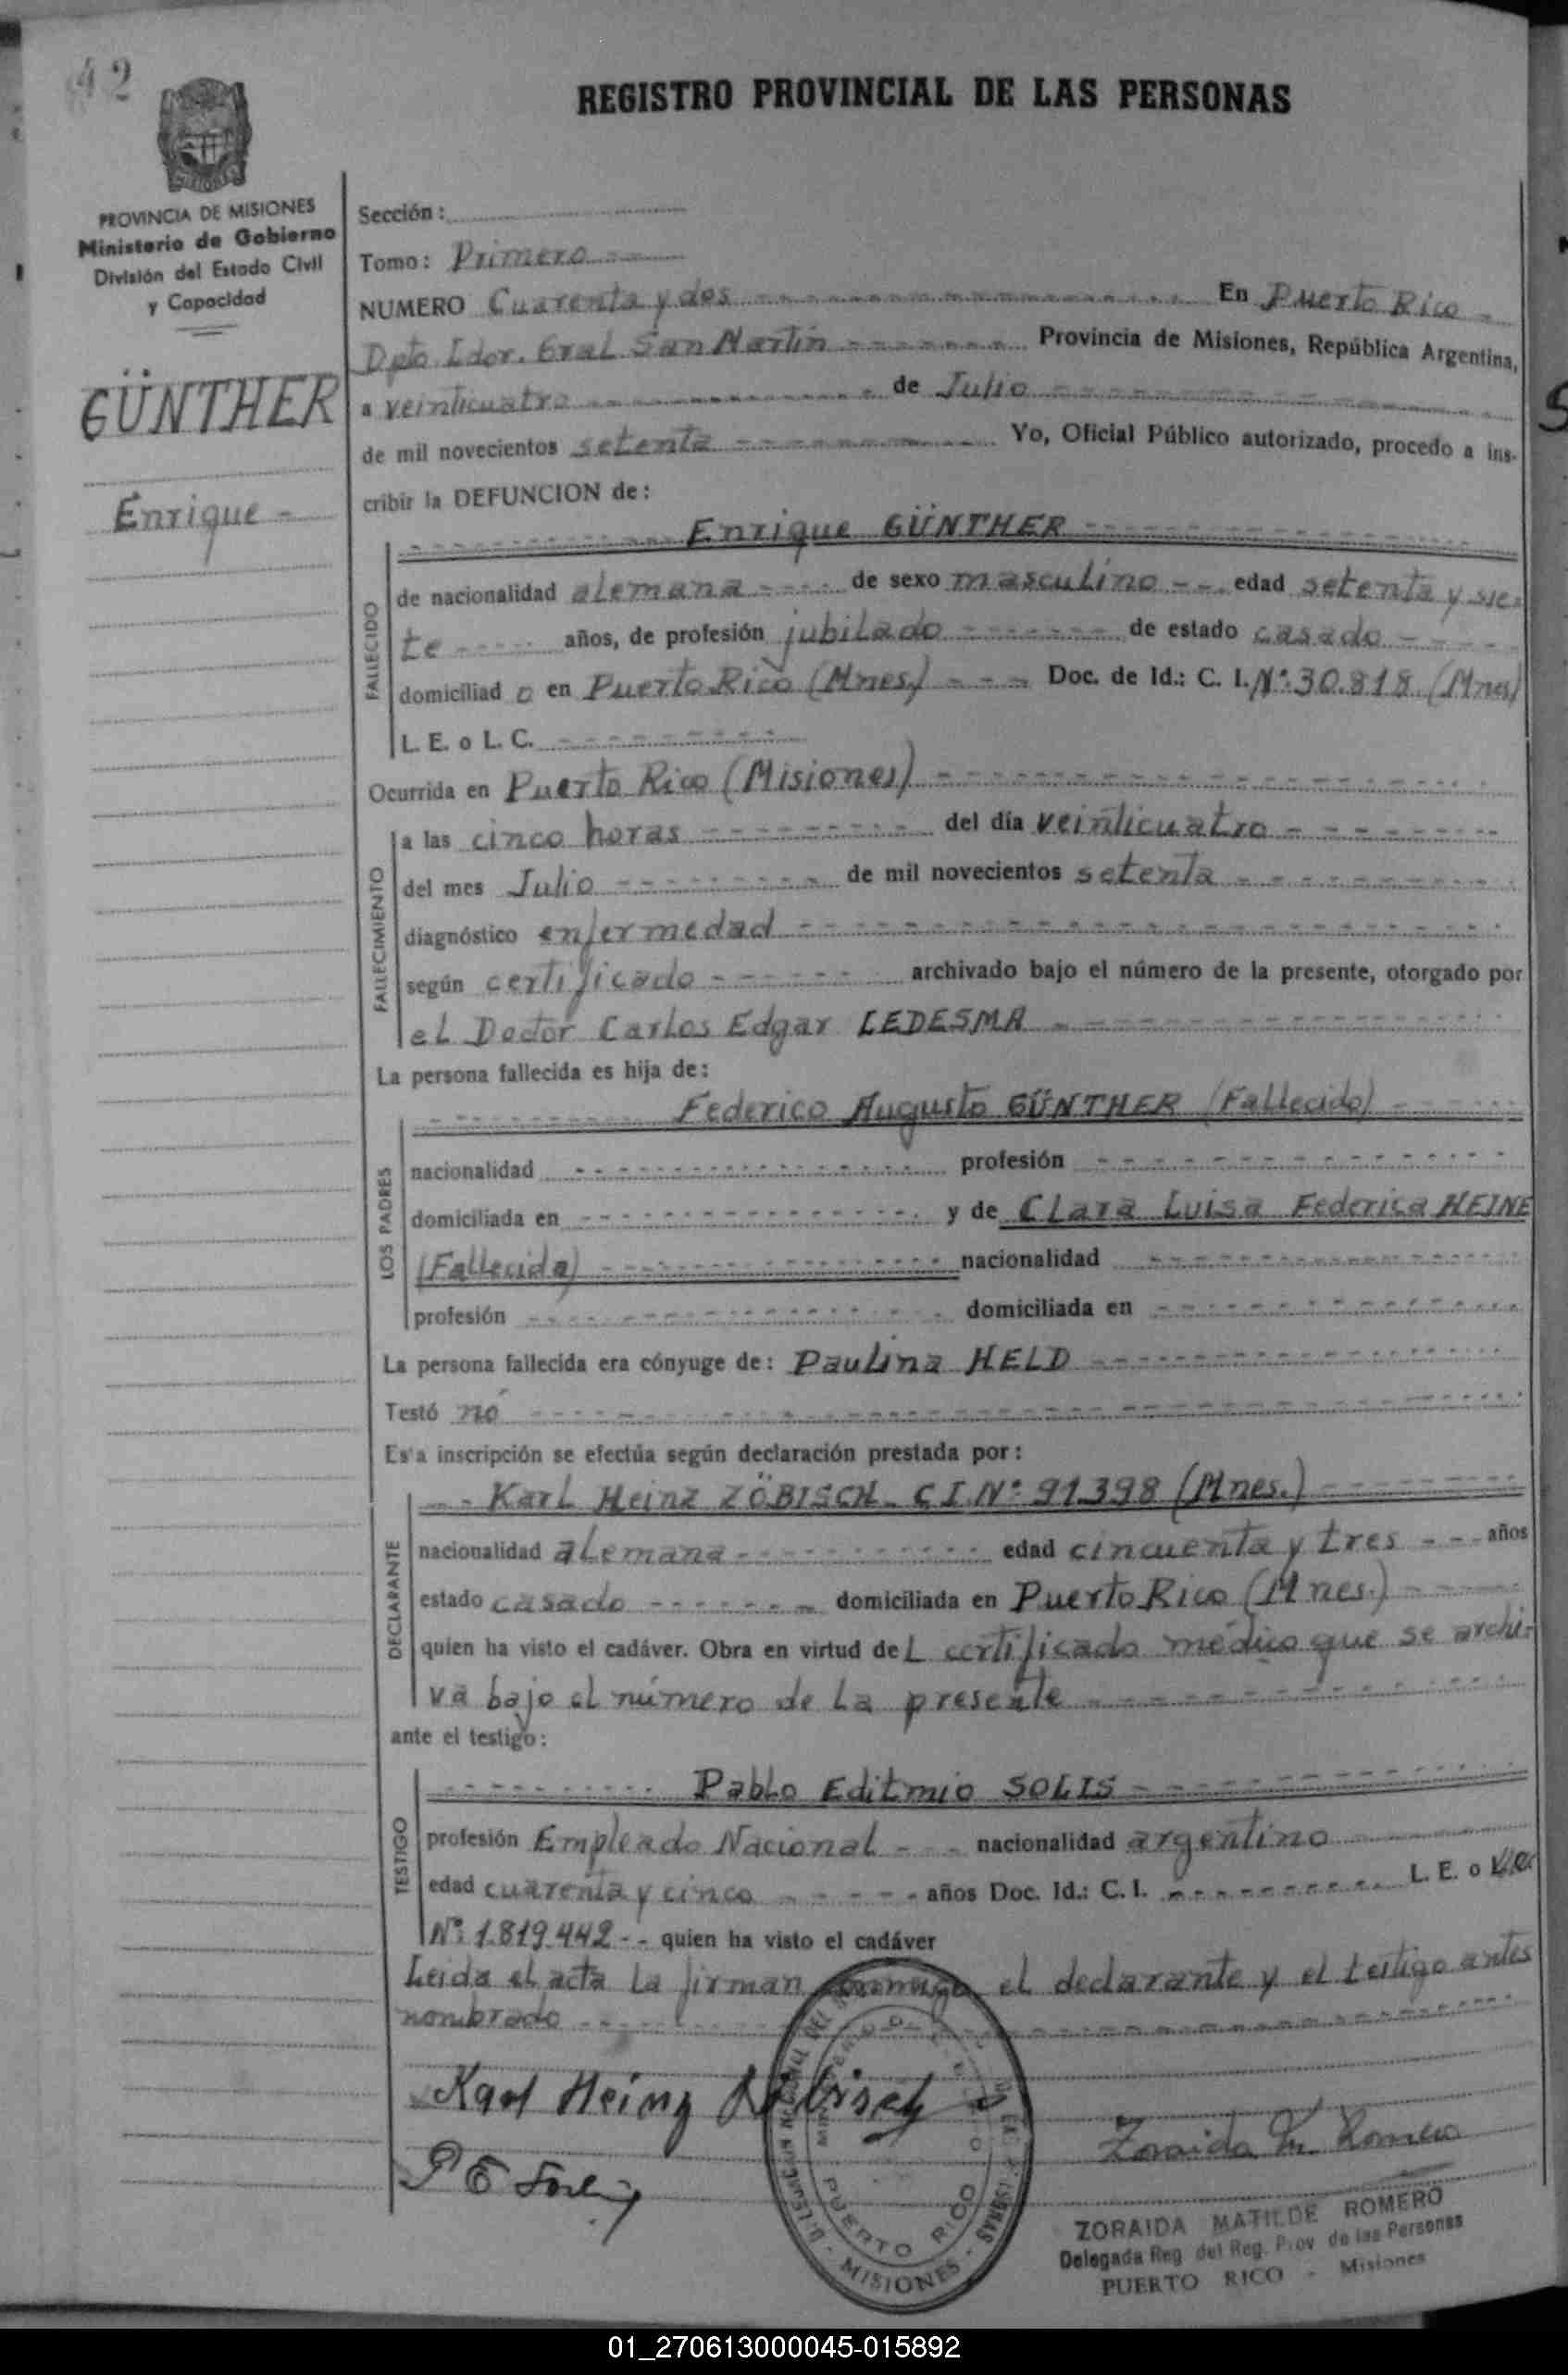 42
REGISTRO PROVINCIAL DE LAS PERSONAS
PROVINCIA DE MISIONES
Ministerio de Gobierno
División del Estado Civil
y Capacidad
GÜNTHER
Enrique -
Sección:
Tomo: Primero
NUMERO Cuarenta y dos En Puerto Rico
Dpto. Ldor. Gral San Martín Provincia de Misiones, República Argentina,
a veinticuatro de Julio
de mil novecientos setenta Yo, Oficial Público autorizado, procedo a ins-
cribir la DEFUNCION de:
Enrique GÜNTHER
FALLECIDO
de nacionalidad alemana de sexo masculino edad setenta y sie-
te años, de profesión jubilado de estado casado
domiciliad o en Puerto Rico (Mnes.) Doc. de Id.: C. I. Nº 30.818 (Mnes)
L. E. o L. C.
Ocurrida en Puerto Rico (Misiones)
FALLECIMIENTO
a las cinco horas del día veinticuatro
del mes Julio de mil novecientos setenta
diagnóstico enfermedad
según certificado archivado bajo el número de la presente, otorgado por
el Doctor Carlos Edgar LEDESMA
La persona fallecida es hija de:
Federico Augusto GÜNTHER (Fallecido)
LOS PADRES
nacionalidad profesión
domiciliada en y de Clara Luisa Federica HEINE
(Fallecida) nacionalidad
profesión domiciliada en
La persona fallecida era cónyuge de: Paulina HELD
Testó nó
Es'a inscripción se efectúa según declaración prestada por:
Karl Heinz ZÖBISCH - C.I. Nº 91.398 (Mnes.)
DECLARANTE
nacionalidad alemana edad cincuenta y tres años
estado casado domiciliada en Puerto Rico (Mnes.)
quien ha visto el cadáver. Obra en virtud de l certificado médico que se archi-
va bajo el número de la presente
ante el testigo:
Pablo Editmio SOLIS
TESTIGO
profesión Empleado Nacional nacionalidad argentino
edad cuarenta y cinco años Doc. Id.: C. I. L. E. o
Nº 1.819.442 quien ha visto el cadáver
Leida el acta la firman conmigo el declarante y el testigo antes
nombrado
Karl Heinz Zöbisch
P E Solis
Zoraida M. Romero
PUERTO RICO
MISIONES
ZORAIDA MATILDE ROMERO
Delegada Reg. del Reg. Prov de las Personas
PUERTO RICO - Misiones
01_270613000045-015892